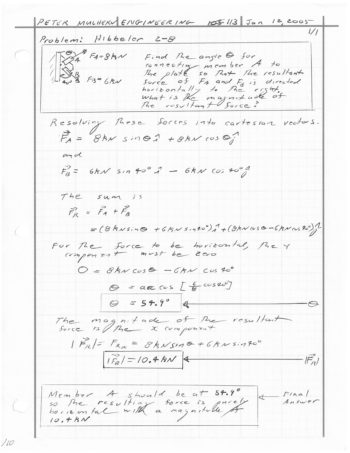 PETER MULHERN ENGINEERING 113 Jan 10, 2005
1/1
Problem: Hibbeler 2-8
FA=8kN
FB=6kN
Find the angle θ for
connecting member A to
the plate so that the resultant
force of FA and FB is directed
horizontally to the right.
What is the magnitude of
the resultant force?
Resolving these forces into cartesian vectors.
FA = 8kN sinθ î + 8kN cosθ ĵ
and
FB = 6kN sin40° î - 6kN cos40° ĵ
The sum is
FR = FA + FB
= (8kN sinθ + 6kN sin40°) î + (8kN cosθ - 6kN cos40°) ĵ
For the force to be horizontal, the y
component must be zero
0 = 8kN cosθ - 6kN cos40°
θ = arc cos [6/8 cos40°]
θ = 54.9° θ
The magnitude of the resultant
force is the x component
|FR| = FRx = 8kN sinθ + 6kN sin40°
|FR| = 10.4 kN |FR|
Member A should be at 54.9°
so the resulting force is purely
horizontal with a magnitude of
10.4 kN
Final
Answer
/10